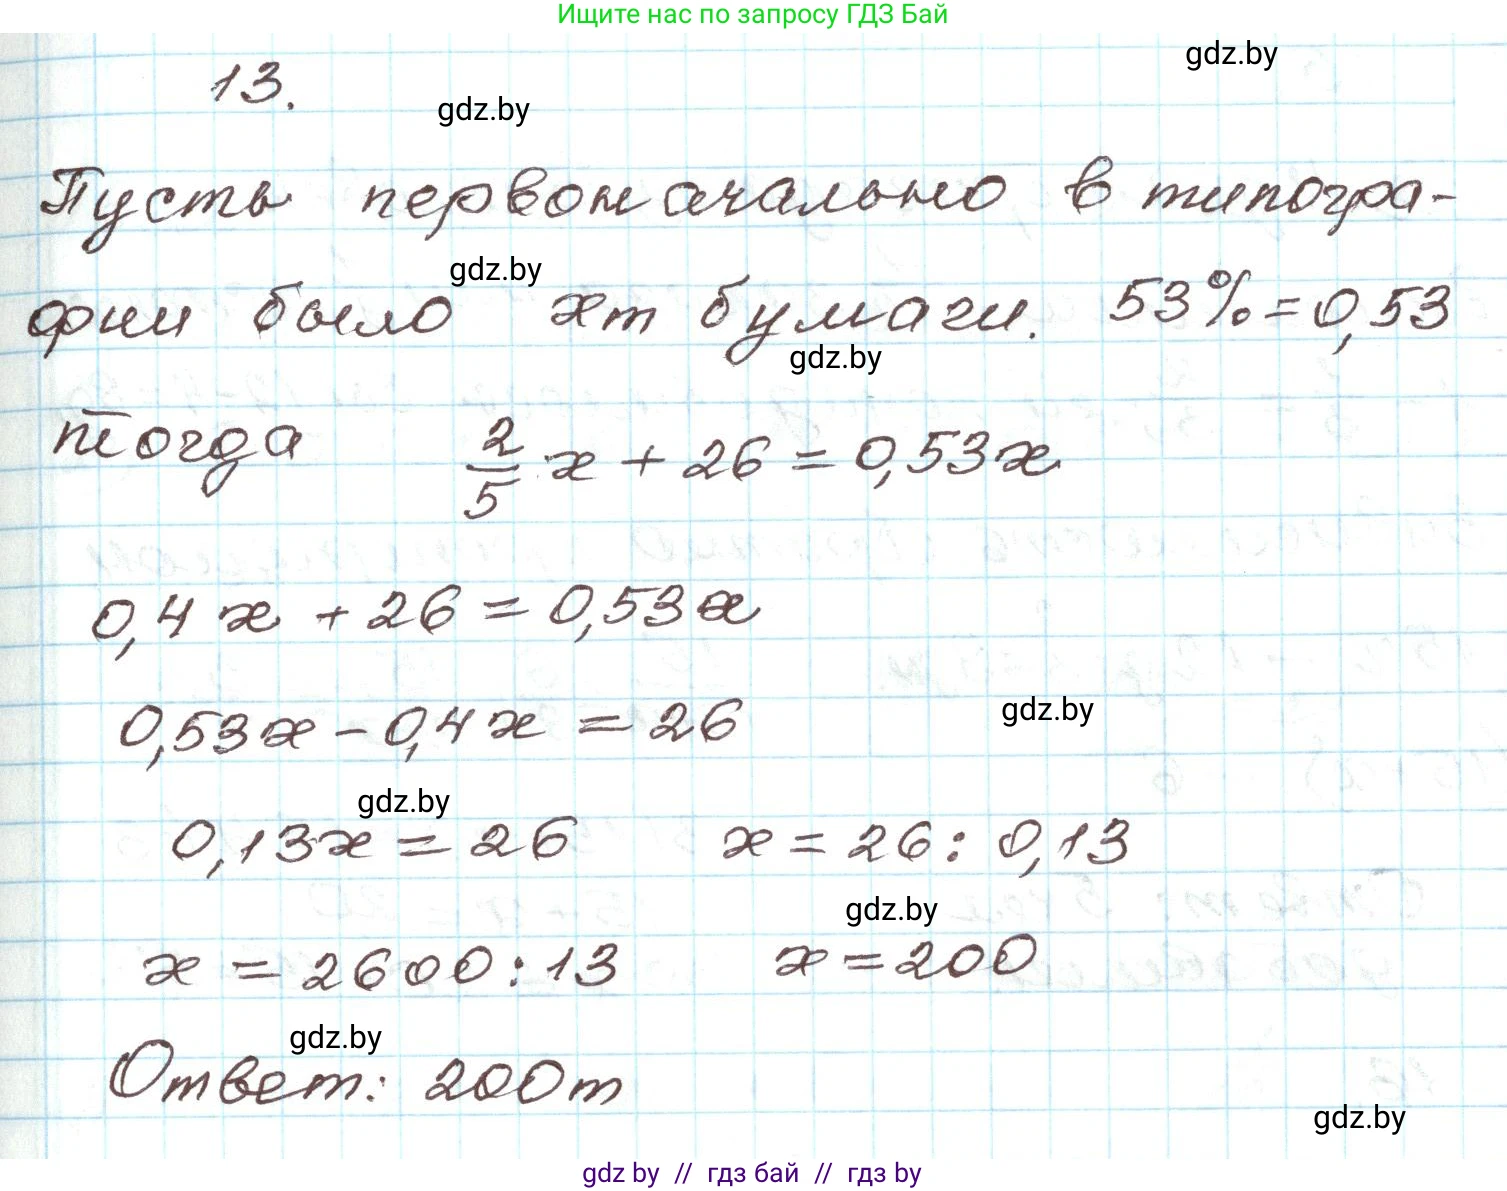 Ищите нас по запросу ГДЗ Бай
gdz.by
13.
gdz.by
Пусть первоначально в типогра-
gdz.by
фии было xт бумаги. 53%=0,53
gdz.by
тогда 2/5 x + 26 = 0,53x
0,4x + 26 = 0,53x
0,53x - 0,4x = 26
gdz.by
gdz.by
0,13x = 26 x = 26 : 0,13
gdz.by
x = 2600 : 13 x = 200
gdz.by
Ответ: 200т
gdz.by
gdz by // гдз бай // гдз by